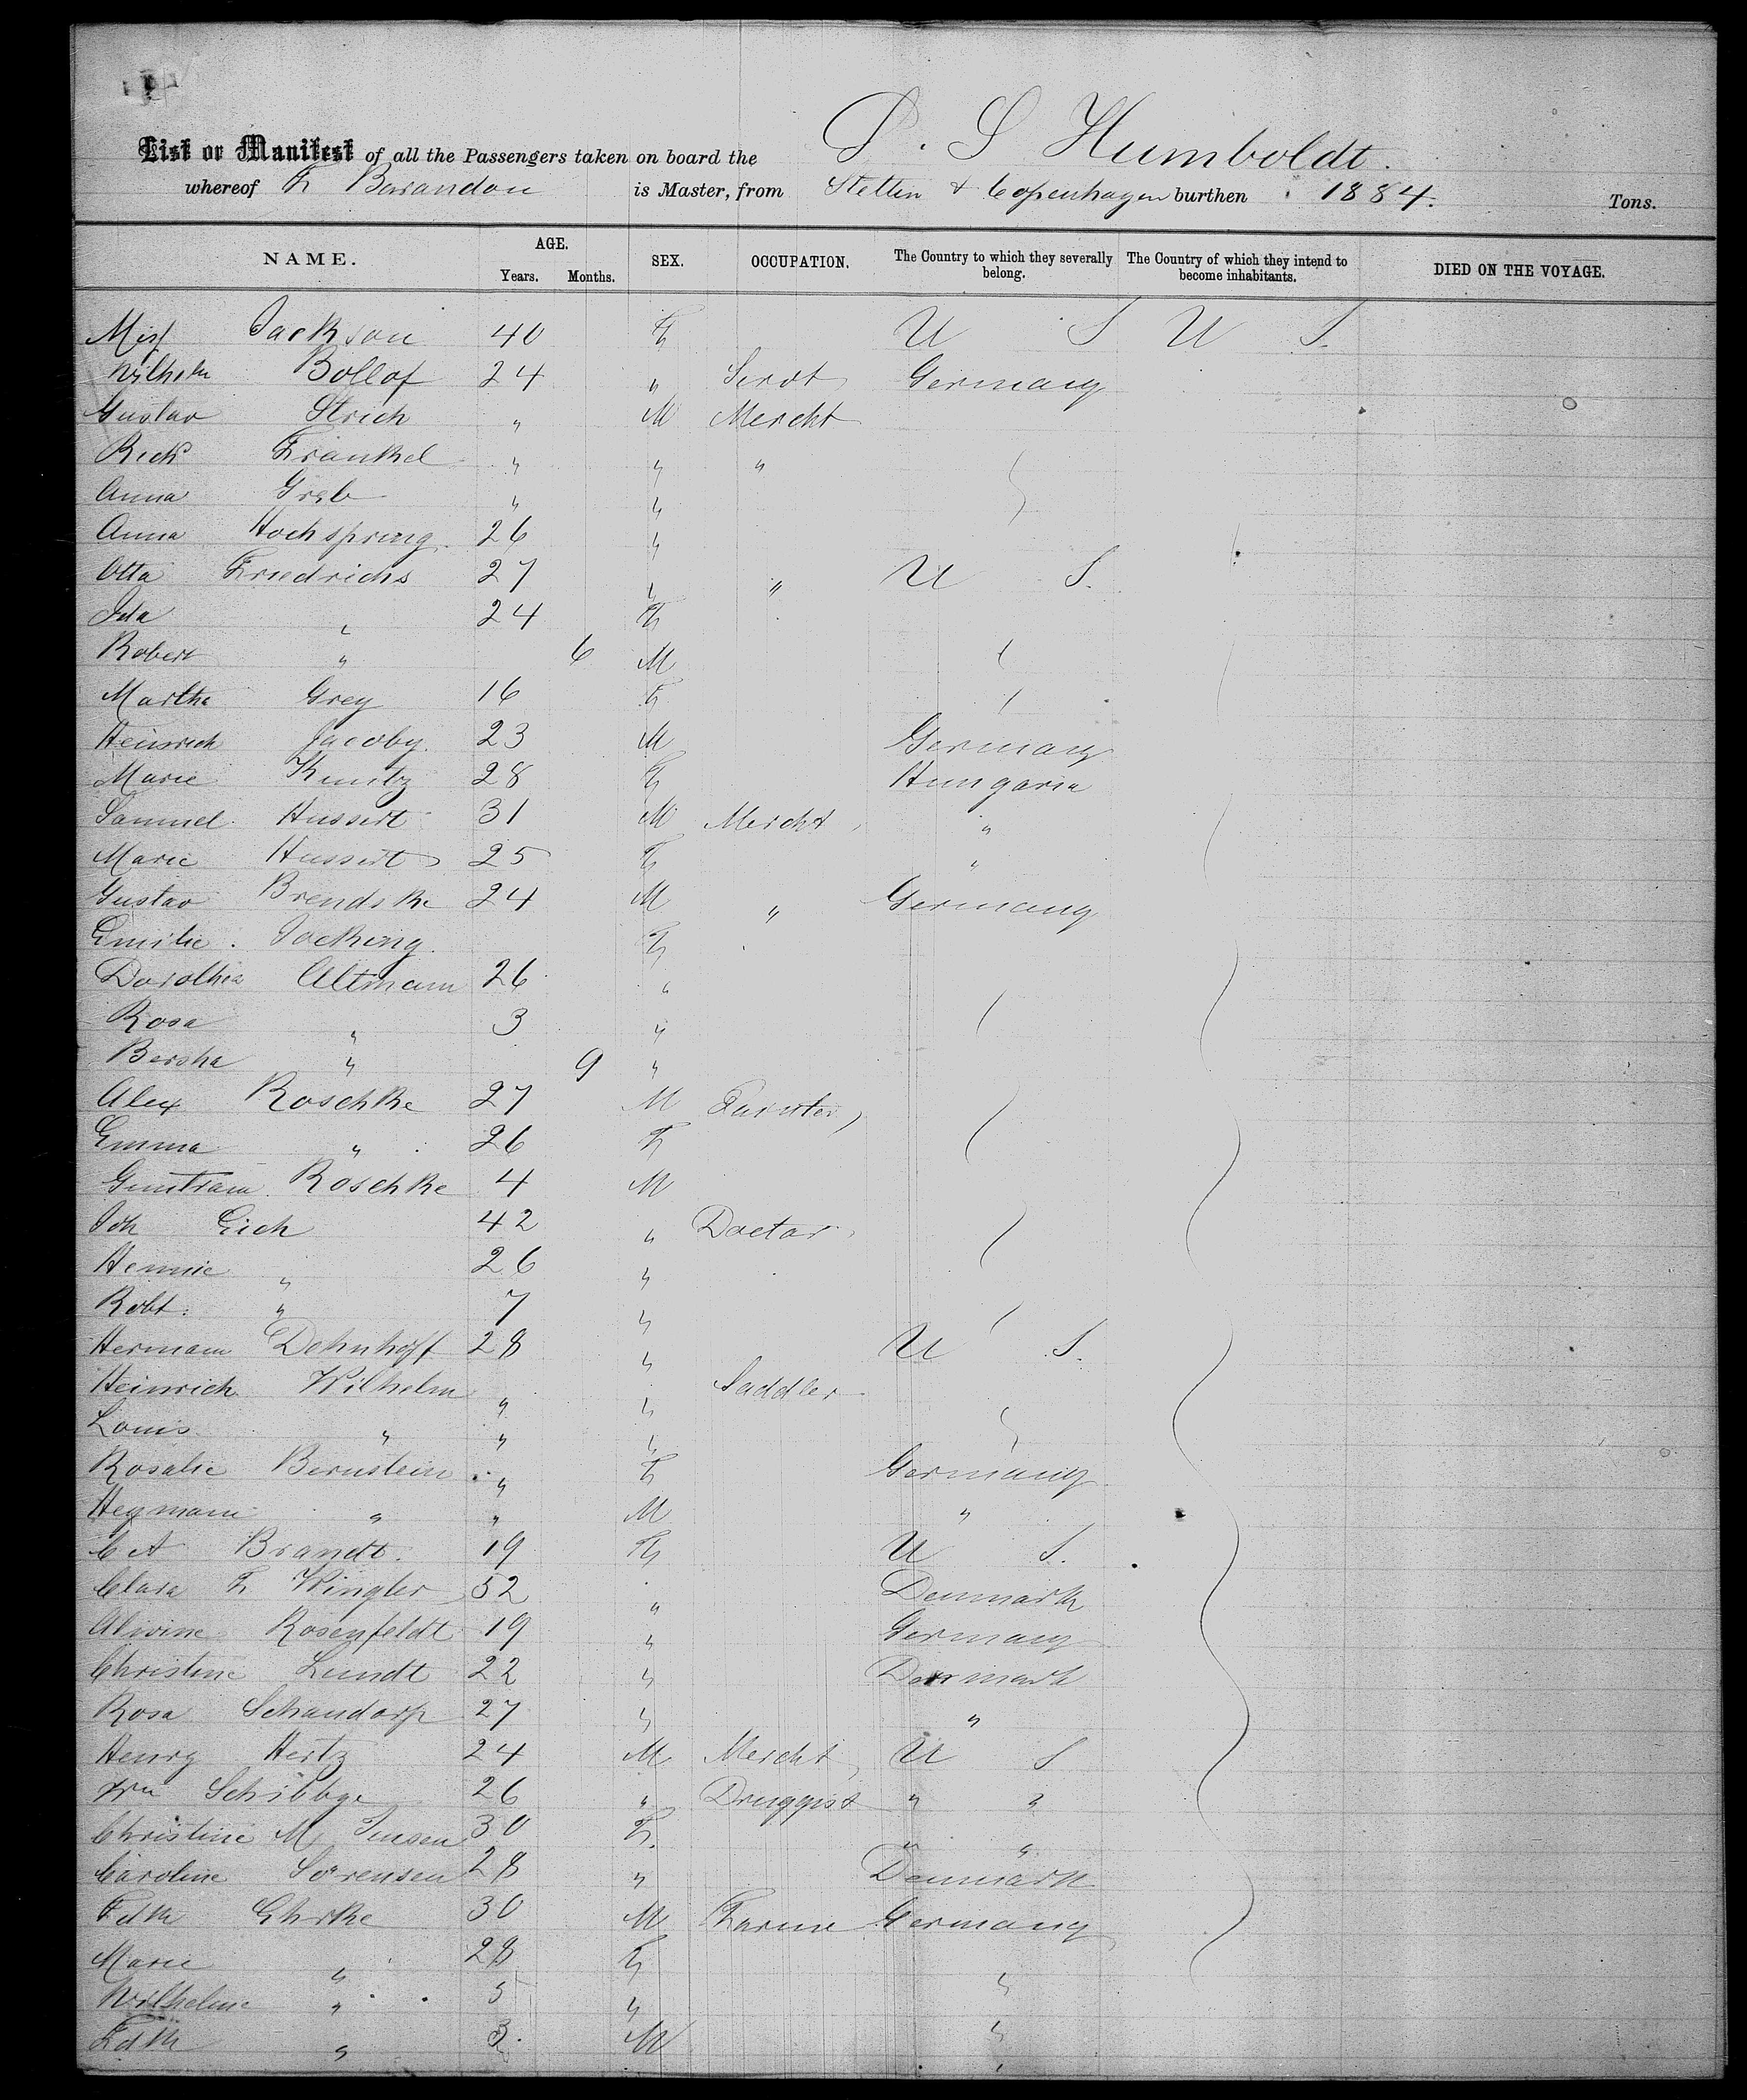 List or Manifest of all the Passengers taken on board the P. S Humboldt.
whereof F Barandon is Master, from Stettin & Copenhagen burthen 1884. Tons.
NAME. AGE. Years. Months. SEX. OCCUPATION. The Country to which they severally belong. The Country of which they intend to become inhabitants. DIED ON THE VOYAGE.
Miss Jackson 40 F U S U S.
Wilhelm Bollof 24 " Servt Germany
Gustav Strich " M Mercht
Rich Frankel " " "
Anna Greb " "
Anna Hochspring 26 "
Otto Friedrichs 27 " " U S.
Ida " 24 F
Robert " 6 M
Martha Grey 16 F
Heinrich Jacoby 23 M Germany
Marie Kunitz 28 F Hungaria
Samuel Hussert 31 M Mercht "
Marie Hussert 25 F "
Gustav Brendske 24 M " Germany
Emilie Jocking F
Dorothea Altmann 26 "
Rosa " 3 "
Bertha " 9 "
Alex Roschke 27 M Painter
Emma " 26 F
Guntram Roschke 4 M
Joh Eich 42 " Doctor
Hennie " 26 "
Robt. " 7 "
Hermann Dehnhoff 28 " U S.
Heinrich Wilhelm " " Saddler
Louis " " "
Rosalie Bernstein " F Germany
Heymann " " M "
C A Brandt. 19 F U S.
Clara F Wingler 52 " Denmark
Alwine Rosenfeldt 19 " Germany
Christine Lundt 22 " Denmark
Rosa Schandorp 27 " "
Henry Hertz 24 M Mercht U S
Wm Schibbye 26 " Druggist " "
Christine M Jensen 30 F. " "
Caroline Sorensen 28 " Denmark
Fdk Ehrke 30 M Farmr Germany
Marie " 28 F "
Wilhelmine " 5 "
Fdk " 3. M "